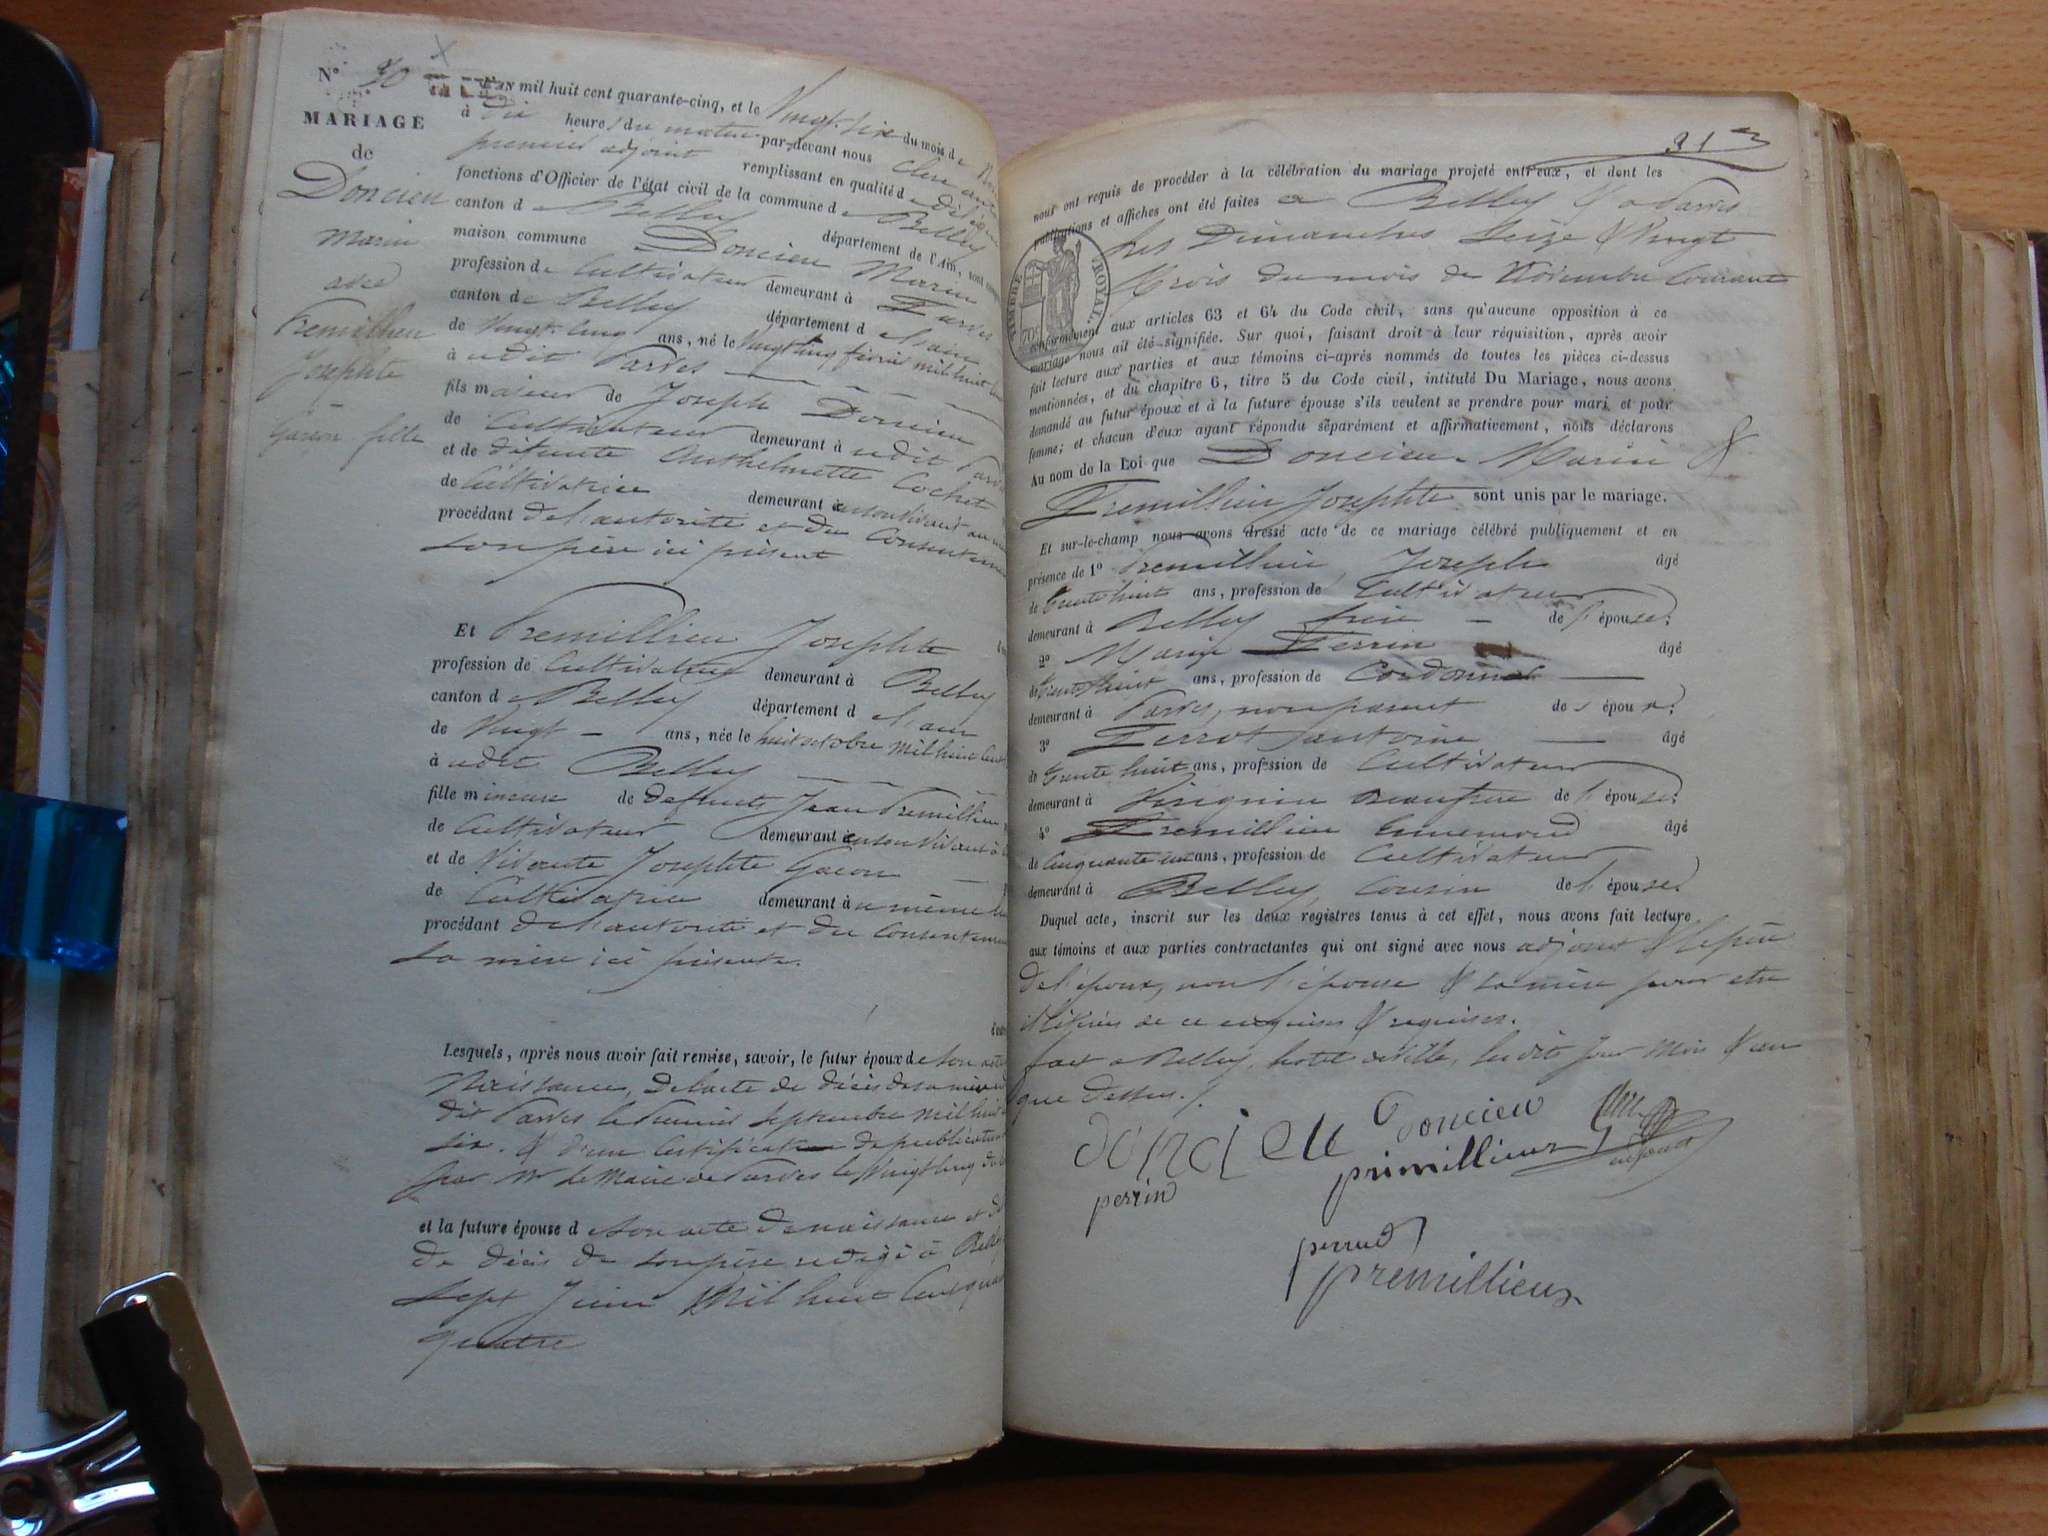 N° 30
MARIAGE
de
Doncieu
Marin
avec
Premillieu
Josephte
Garçon fille
L'AN mil huit cent quarante-cinq, et le Vingt-six du mois de
à dix heures du matin par-devant nous
premier adjoint remplissant en qualité d
fonctions d'Officier de l'état civil de la commune de Belley
canton de Belley département de l'Ain, sont
maison commune Doncieu Marin
profession de Cultivateur demeurant à Parves
canton de Belley département de l'ain
de Vingt-cinq ans, né le vingt cinq février mil huit
à udit Parves
fils majeur de Joseph Doncieu
de Cultivateur demeurant à udit
et de défunte Anthelmette Cochet
de Cultivatrice demeurant en son vivant au
procédant de l'autorité et du consentem
son père ici présent
Et Premillieu Josephte
profession de Cultivatrice demeurant à Belley
canton de Belley département de l'ain
de Vingt ans, née le huit octobre mil huit cent
à udit Belley
fille mineure de defunct Jean Premillieu
de Cultivateur demeurant en son vivant à
et de Vivante Josephte Gacon
de Cultivatrice demeurant à u même
procédant de l'autorité et du consentem
sa mère ici présente.
Lesquels, après nous avoir fait remise, savoir, le futur époux de son acte
Naissance, de l'acte de décès de sa mère
dit Parves le premier septembre mil huit
six. & d'un certificat de publication
par Mr le Maire de Parves le Vingt cinq du
et la future épouse d son acte de naissance et d
de décès de son père rédigé à Bell
sept Juin Mil huit Cent qua
quatre
31
nous ont requis de procéder à la célébration du mariage projeté entr'eux, et dont les
publications et affiches ont été faites à Belley & à Parves
les Dimanches Seize & Vingt
trois du mois de Novembre Courant
TIMBRE ROYAL
conformément aux articles 63 et 64 du Code civil, sans qu'aucune opposition à ce
mariage nous ait été signifiée. Sur quoi, faisant droit à leur réquisition, après avoir
fait lecture aux parties et aux témoins ci-après nommés de toutes les pièces ci-dessus
mentionnées, et du chapitre 6, titre 5 du Code civil, intitulé Du Mariage, nous avons
demandé au futur époux et à la future épouse s'ils veulent se prendre pour mari et pour
femme; et chacun d'eux ayant répondu séparément et affirmativement, nous déclarons
Au nom de la Loi que Doncieu Marin &
Premillieu Josephte sont unis par le mariage.
Et sur-le-champ nous avons dressé acte de ce mariage célébré publiquement et en
présence de 1° Premillieu Joseph âgé
de trente huit ans, profession de Cultivateur
demeurant à Belley frère de l'épouse.
2° Marin Perrin âgé
de trente huit ans, profession de Cordonnier
demeurant à Parves, non parent de s époux.
3° Perrot antoine âgé
de trente huit ans, profession de Cultivateur
demeurant à Virignin beaufrère de l'épouse.
4° Premillieu Ennemond âgé
de Cinquante un ans, profession de Cultivateur
demeurant à Belley, Cousin de l'épouse.
Duquel acte, inscrit sur les deux registres tenus à cet effet, nous avons fait lecture
aux témoins et aux parties contractantes qui ont signé avec nous adjoint & le père
de l'époux, non l'épouse & sa mère pour être
illitérées de ce enquises & requises.
fait à Belley, hotel de Ville, les dits jour mois & an
que dessus./.
doncieu Doncieu
primillieux
perrin
perrud
premillieux